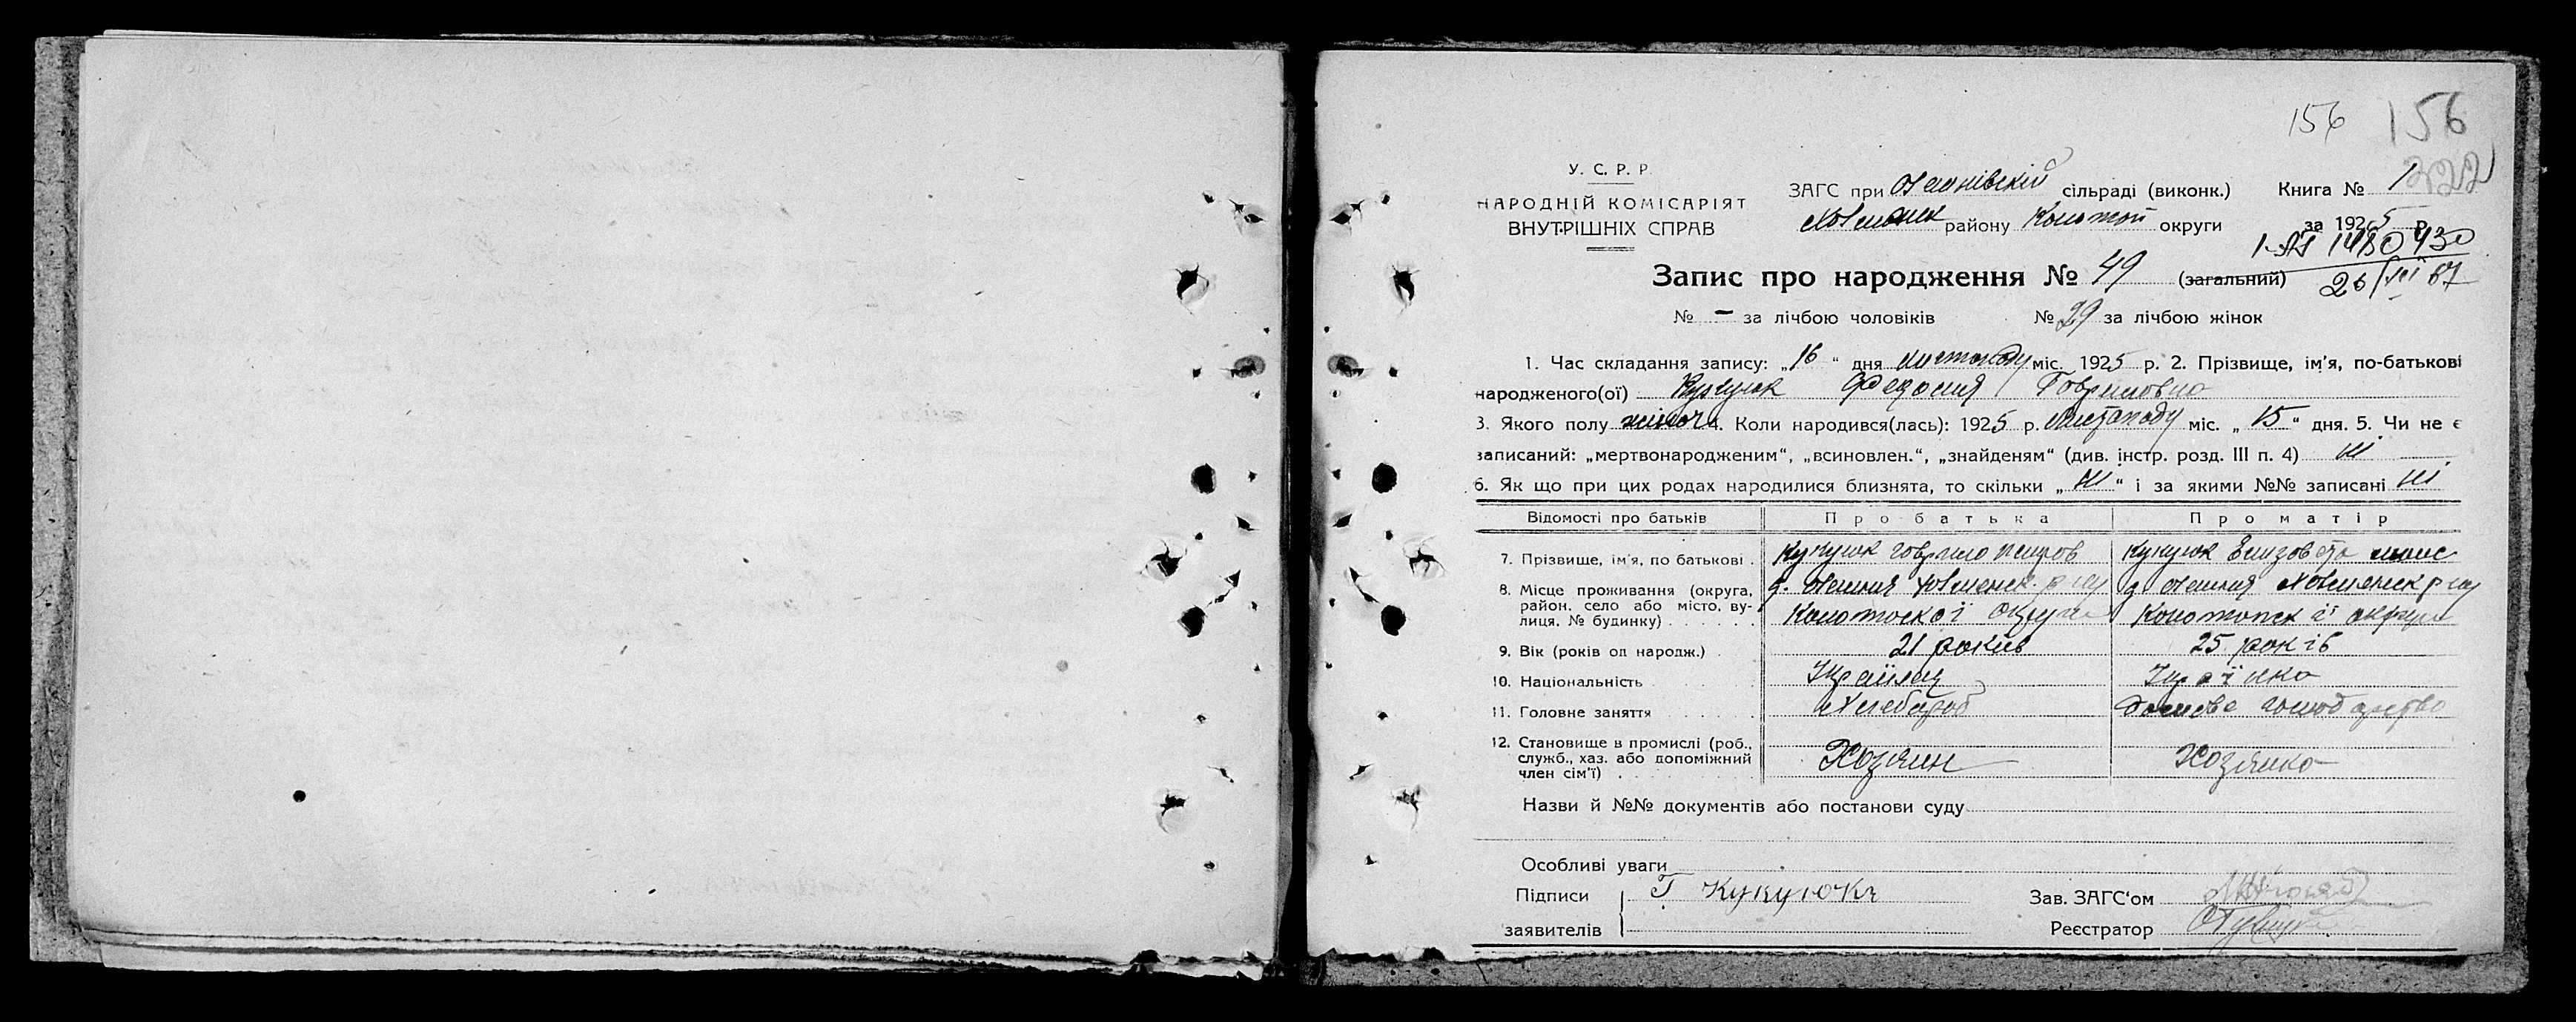 156 156
322
У. С. Р. Р.
НАРОДНІЙ КОМІСАРІЯТ
ВНУТРІШНІХ СПРАВ
ЗАГС при сільраді (виконк.) Книга № 1
району Конотоп округи за 1925 р.
1-АЗ 1480430
26/VII 67
Запис про народження № 49 (загальний)
№ - за лічбою чоловіків № 29 за лічбою жінок
1. Час складання запису: „16“ дня листопаду міс. 1925 р. 2. Прізвище, ім'я, по-батькові
народженого(ої) Кукуюк Федосия Говриловна
3. Якого полу жіноч 4. Коли народився(лась): 1925 р. Листападу міс. „15“ дня. 5. Чи не є
записаний: „мертвонародженим“, „всиновлен.“, „знайденям“ (див. інстр. розд. III п. 4) ні
6. Як що при цих родах народилися близнята, то скільки „ні“ і за якими №№ записані ні
Відомості про батьків Про батька Про матір
7. Прізвище, ім'я, по батькові . Кукуюк Говрило Кукуюк Елизовета
8. Місце проживання (округа, район, село або місто, вулиця, № будинку)
Конотопскої округи Конотопск ії округи
9. Вік (років од народж.) 21 років 25 років
10. Національність Українц Украінка
11. Головне заняття Хлебороб Домове господарство
12. Становище в промислі (роб., служб., хаз. або допоміжний член сім'ї) Хозяин Хозяйка
Назви й №№ документів або постанови суду
Особливі уваги
Підписи Г Кукуюкъ Зав. ЗАГС'ом
заявителів Реєстратор